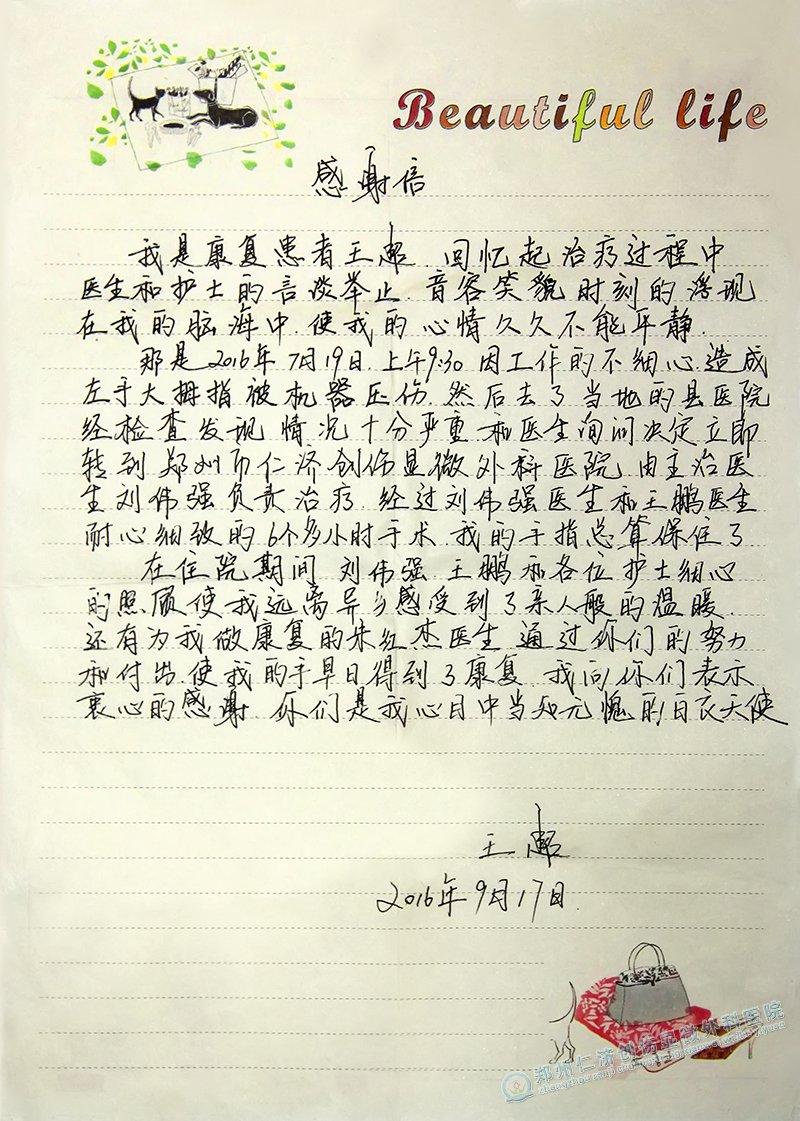 Beautiful life
感谢信
我是康复患者王 回忆起治疗过程中
医生和护士的言谈举止.音容笑貌时刻的浮现
在我的脑海中.使我的心情久久不能平静.
那是2016年7月19日.上午9:30因工作的不细心.造成
左手大拇指被机器压伤.然后去了当地的县医院
经检查发现情况十分严重和医生询问决定立即
转到郑州市仁济创伤显微外科医院.由主治医
生刘伟强负责治疗.经过刘伟强医生和王鹏医生
耐心细致的6个多小时手术.我的手指总算保住了
在住院期间 刘伟强.王鹏和各位护士细心
的照顾使我远离异乡感受到了亲人般的温暖.
还有为我做康复的朱红杰医生.通过你们的努力
和付出.使我的手早日得到了康复.我向你们表示
衷心的感谢.你们是我心目中当知无愧的白衣天使
王
2016年9月17日.
郑州仁济创伤显微外科医院